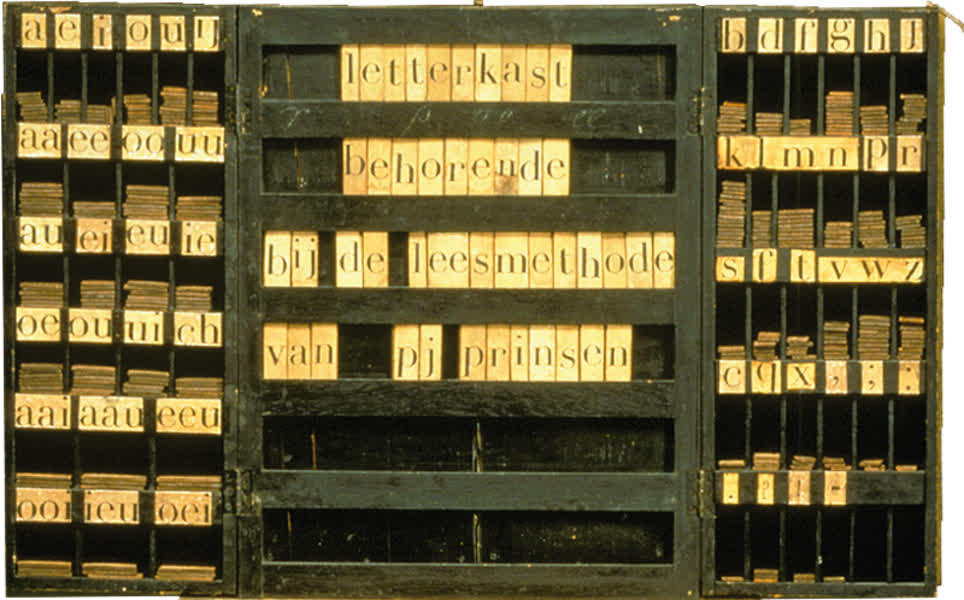 a e i o u ij
aa ee oo uu
au ei eu ie
oe ou ui ch
aai aau eeu
ooi ieu oei
letterkast
behorende
bij de leesmethode
van pj prinsen
b d f g h j
k l m n p r
s f t v w z
c q x , ; :
. ? ! -